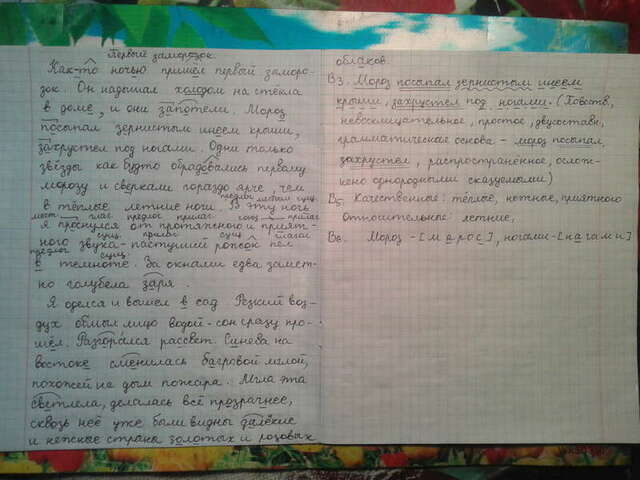 Первый заморозок.
Как-то ночью пришёл первый заморо-
зок. Он надышал холодом на стёкла
в доме, и они запотели. Мороз
посыпал зернистым инеем крыши,
захрустел под ногами. Одни только
звёзды как будто обрадовались первому
морозу и сверкали гораздо ярче, чем
предлог местоим сущ.
в тёплые летние ночи. В эту ночь
мест. глаг предлог прилаг союз прилаг
я проснулся от протяжного и прият-
сущ. прилаг сущ. глагол
ного звука - пастуший рожок пел
предлог сущ.
в темноте. За окнами едва замет-
но голубела заря.
Я оделся и вышел в сад. Резкий воз-
дух обмыл лицо водой - сон сразу про-
шёл. Разгорался рассвет. Синева на
востоке сменилась багровой мглой,
похожей на дым пожара. Мгла эта
светлела, делалась всё прозрачнее,
сквозь неё уже были видны далёкие
и нежные страна золотых и розовых
облаков.
В3. Мороз посыпал зернистым инеем
крыши, захрустел под ногами. (Повеств,
невосклицательное, простое, двусоставн,
грамматическая основа - мороз посыпал,
захрустел, распространённое, ослож-
нено однородными сказуемыми)
В5. Качественные: тёплые, нежные, приятного
Относительные: летние,
В6. Мороз - [м а р о с], ногами - [н а г а м и]